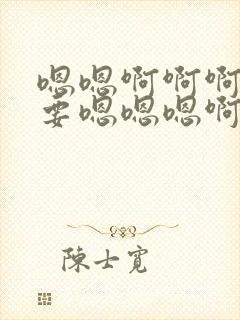 嗯嗯啊啊啊
要嗯嗯嗯啊
陳士寬